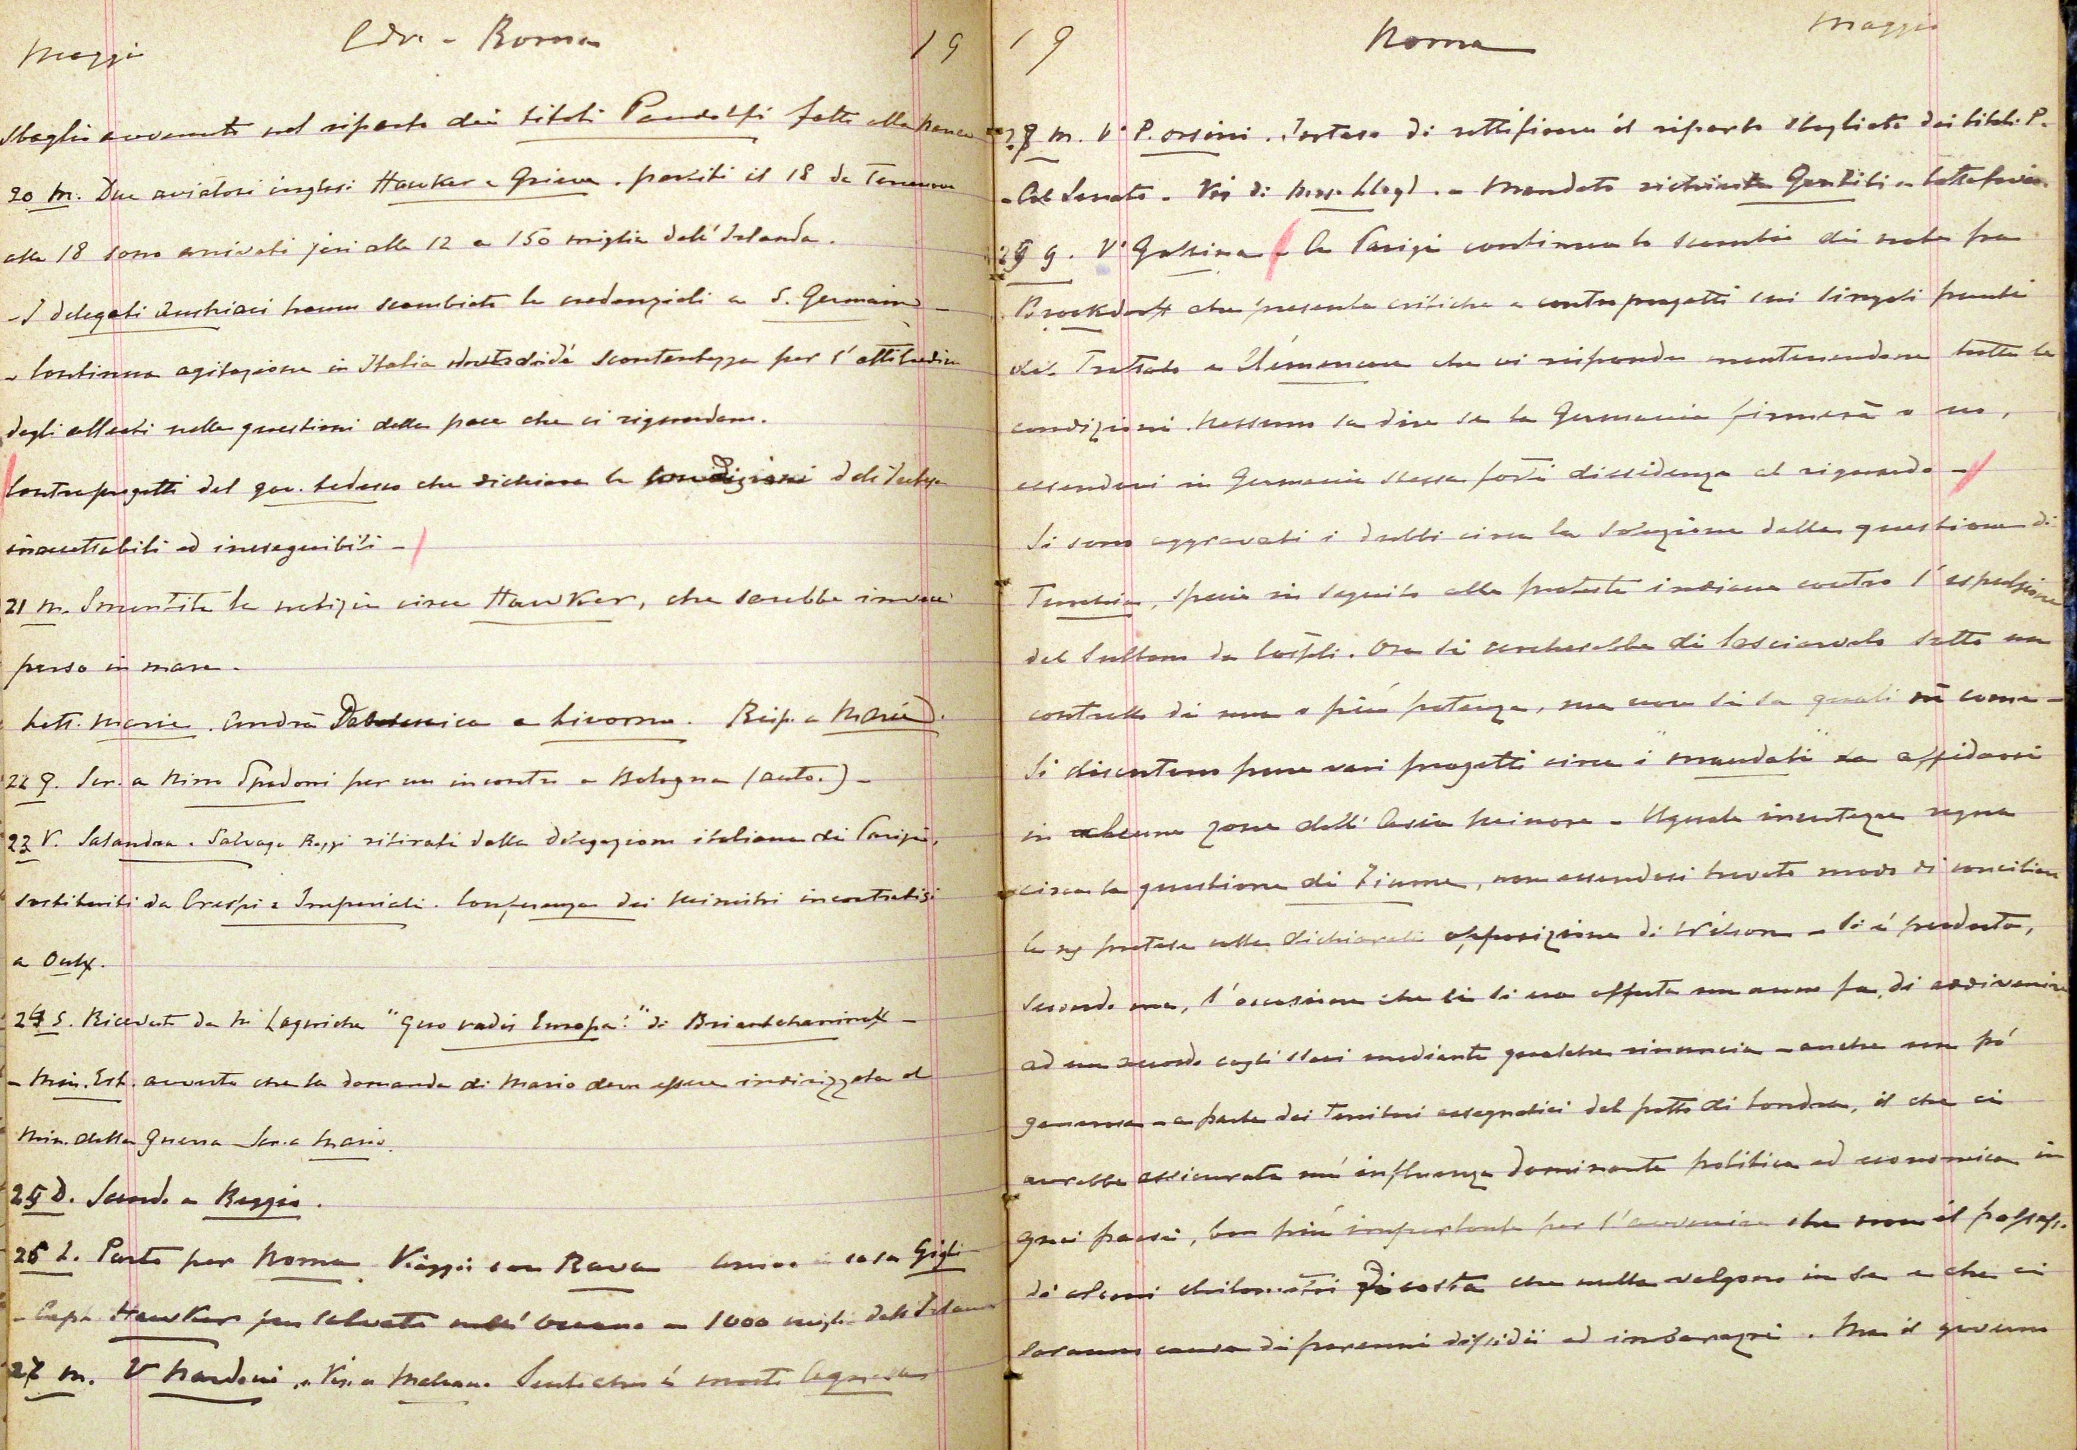 Maggio Cdr. - Roma 19
sbaglio avvenuto nel riparto dei titoli Pandolfi fatto alla banca
20 M. Due aviatori inglesi Hawker e Grieve partiti il 18 da Terranova
alle 18 sono arrivati jeri alle 12 a 150 miglia dall'Islanda.
- I delegati austriaci hanno scambiato le credenziali a S. Germain -
- Continua agitazione in Italia scontentezza per l'attitudine
degli alleati nelle questioni della pace che ci riguardano.
Controprogetti del gov. tedesco che dichiara le condizioni dell'Intesa
inaccettabili ed ineseguibili -
21 M. Smentita la notizia circa Hawker, che sarebbe invece
perso in mare.
Lett. Maria. Andrà Domenica a Livorno. Risp. a Maria.
22 G. Scr. a Nino Spadoni per un incontro a Bologna (auto.) -
23 V. Salandra e Salvago Raggi ritirati dalla delegazione italiana di Parigi,
sostituiti da Crespi e Imperiali. Conferenza dei Ministri incontratisi
a Oulx.
24 S. Ricevuto da "Quo vadis Europa?" di
- Min. Est. avverte che la domanda di Mario deve essere indirizzata al
Min. della Guerra - Scr. a Mario.
25 D. Scendo a Reggio.
26 L. Parto per Roma. Viaggio con Rava casa Gigli
- Capt. Hawker fu salvato nell'Oceano a 1000 miglia dall'Islanda
27 M. V. Nardoni. Vis. a è morto
19 Roma Maggio
28 M. Vo P. Orsini. Inteso di rettificare il riparto sbagliato dei titoli P.
- Al Senato - Vis. di - Mandato Gentili
29 G. Vo Gallina - A Parigi continua lo scambio di note fra
Brockdorff che presenta critiche e controprogetti sui singoli punti
del Trattato e Clémenceau che vi risponde mantenendone tutte le
condizioni. Nessuno sa dire se la Germania firmerà o no,
essendovi in Germania stessa forti dissidenze al riguardo -
Si sono aggravati i dubbi circa la soluzione della questione di
Turchia, specie in seguito alle proteste indiane contro l'espulsione
del Sultano da Cospli. Ora si cercherebbe di lasciarvelo sotto un
controllo di una o più potenze, ma non si sa quali nè come -
Si discutono pure vari progetti circa i "mandati" da affidarsi
in alcune zone dell'Asia Minore - Uguale incertezza regna
circa la questione di Fiume, non essendosi trovato modo di conciliare
le ns pretese colla dichiarata opposizione di Wilson - Si è perduta,
secondo me, l'occasione che ci si era offerta un anno fa, di addivenire
ad un accordo cogli slavi mediante qualche rinuncia - anche un pò
generosa - a parte dei territori assegnatici dal patto di Londra, il che ci
avrebbe assicurata un'influenza dominante politica ed economica in
quei paesi, ben più importante per l'avvenire che non il possesso
di alcuni chilometri di costa che nulla valgono in se e che ci
saranno causa di perenni dissidii ed imbarazzi. Ma il governo